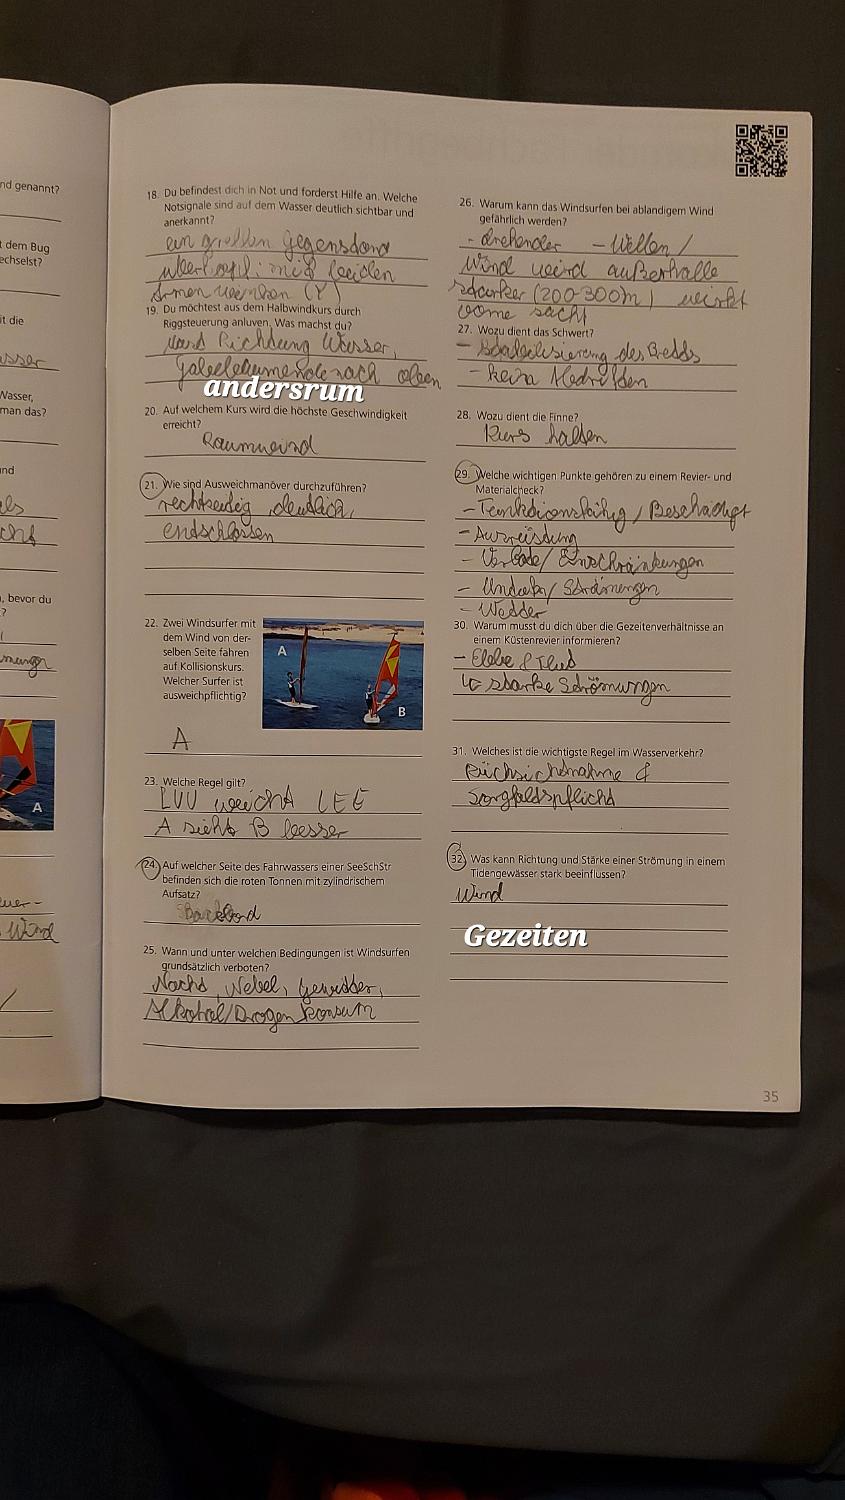 nd genannt?
t dem Bug
echselst?
it die
asser
Wasser,
man das?
nd
als
cht
, bevor du
?
mungn
A
uer-
Wind
18. Du befindest dich in Not und forderst Hilfe an. Welche
Notsignale sind auf dem Wasser deutlich sichtbar und
anerkannt?
ein grellen Gegenstand
überkopf; mit beiden
Armen winken (Y)
19. Du möchtest aus dem Halbwindkurs durch
Riggsteuerung anluven. Was machst du?
Mast Richtung Wasser,
Gabelbaumende nach oben
andersrum
20. Auf welchem Kurs wird die höchste Geschwindigkeit
erreicht?
Raumwind
21. Wie sind Ausweichmanöver durchzuführen?
rechtzeitig, deutlich,
entschlossen
22. Zwei Windsurfer mit
dem Wind von der-
selben Seite fahren
auf Kollisionskurs.
Welcher Surfer ist
ausweichpflichtig?
A
B
A
23. Welche Regel gilt?
LUV weicht LEE
A sieht B besser
24. Auf welcher Seite des Fahrwassers einer SeeSchStr
befinden sich die roten Tonnen mit zylindrischem
Aufsatz?
Backbord
25. Wann und unter welchen Bedingungen ist Windsurfen
grundsätzlich verboten?
Nachts, Nebel, Gewitter,
Alkohol/Drogen konsum
26. Warum kann das Windsurfen bei ablandigem Wind
gefährlich werden?
- drehender - Wellen /
Wind wird außerhalb
stärker (200-300m) wirkt
vorne sacht
27. Wozu dient das Schwert?
- Stabilisierung des Bretts
- kein Abdriften
28. Wozu dient die Finne?
Kurs halten
29. Welche wichtigen Punkte gehören zu einem Revier- und
Materialcheck?
- Funktionsfähig / Beschädigt
- Ausrüstung
- Verbote / Einschränkungen
- Strömungen
- Wetter
30. Warum musst du dich über die Gezeitenverhältnisse an
einem Küstenrevier informieren?
- Ebbe & Flut
↳ starke Strömungen
31. Welches ist die wichtigste Regel im Wasserverkehr?
Rücksichtnahme &
Sorgfaltspflicht
32. Was kann Richtung und Stärke einer Strömung in einem
Tidengewässer stark beeinflussen?
Wind
Gezeiten
35